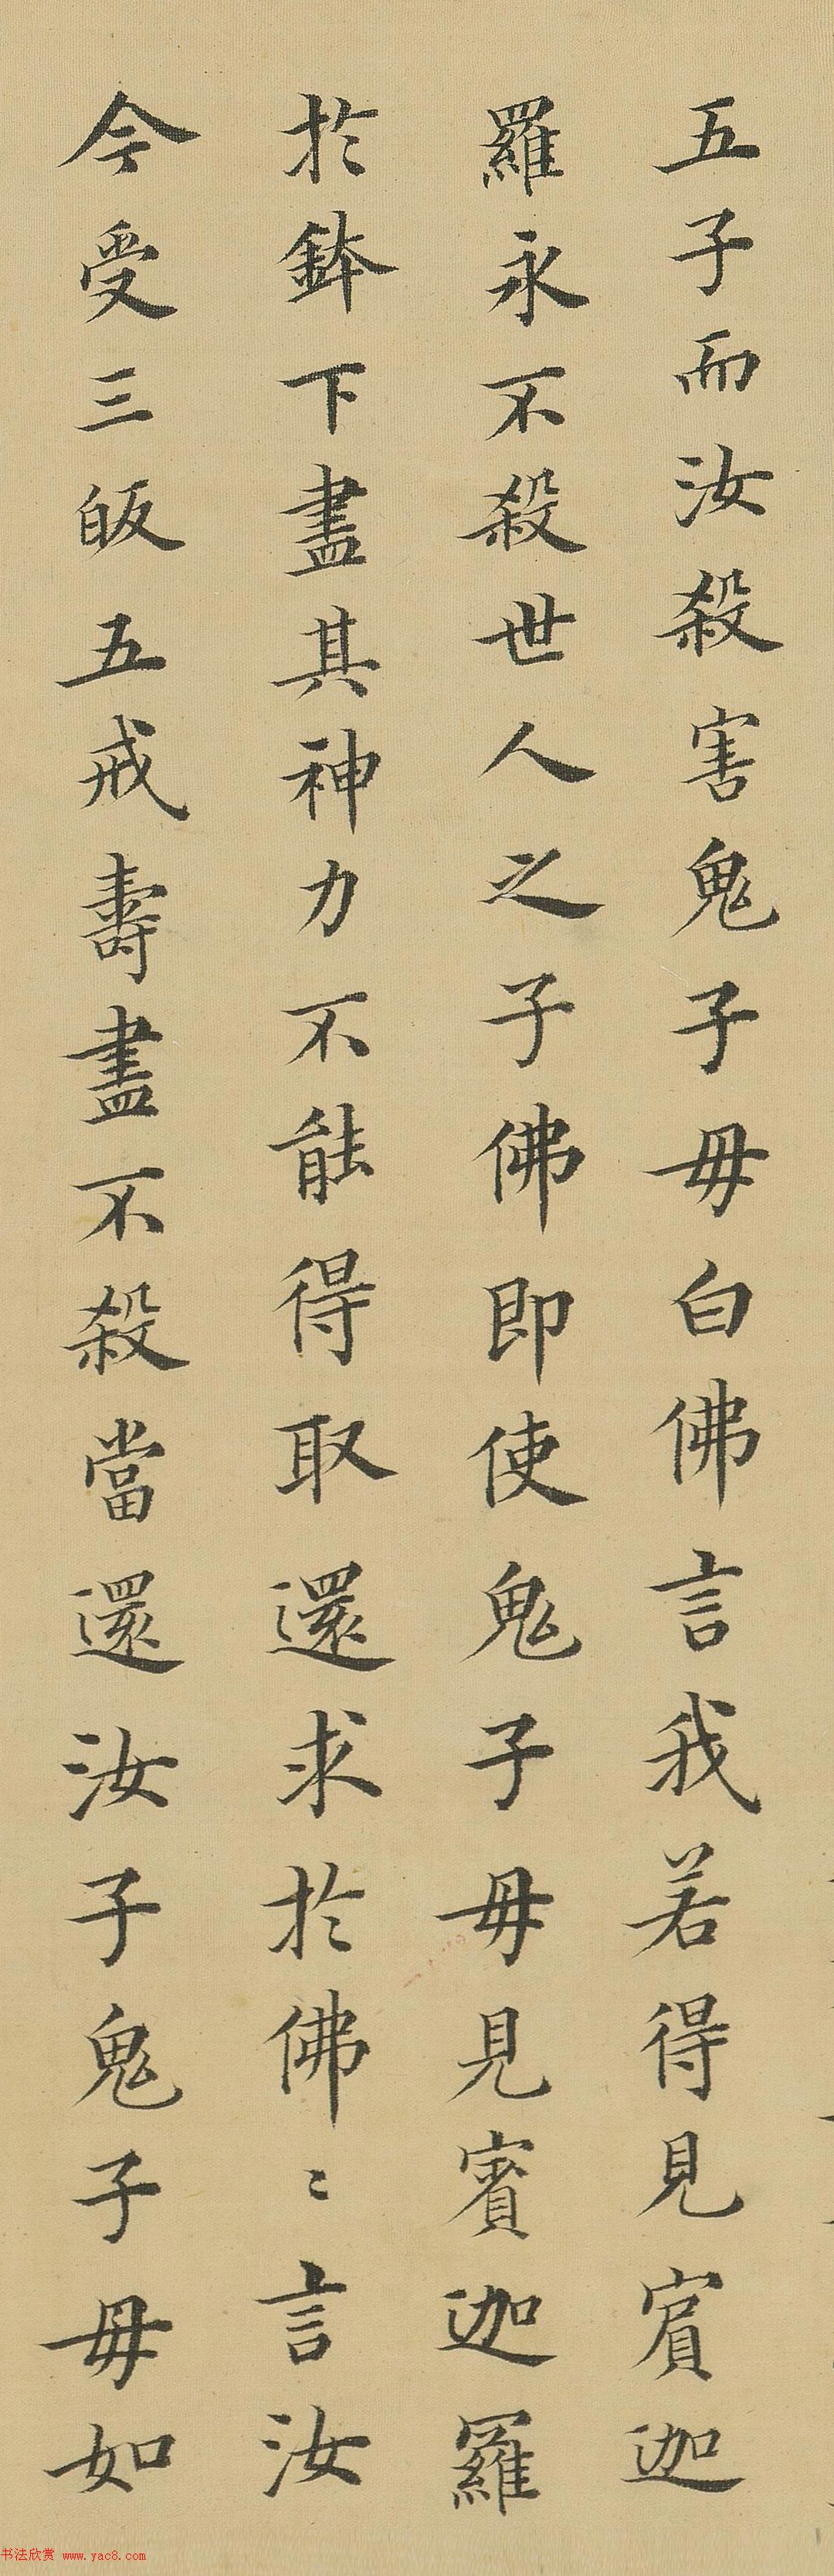 五子而汝殺害鬼子母白佛言我若得見賓迦
羅永不殺世人之子佛即使鬼子母見賓迦羅
於鉢下盡其神力不能得取還求於佛〻言汝
今受三皈五戒壽盡不殺當還汝子鬼子母如
书法欣赏 www.yac8.com